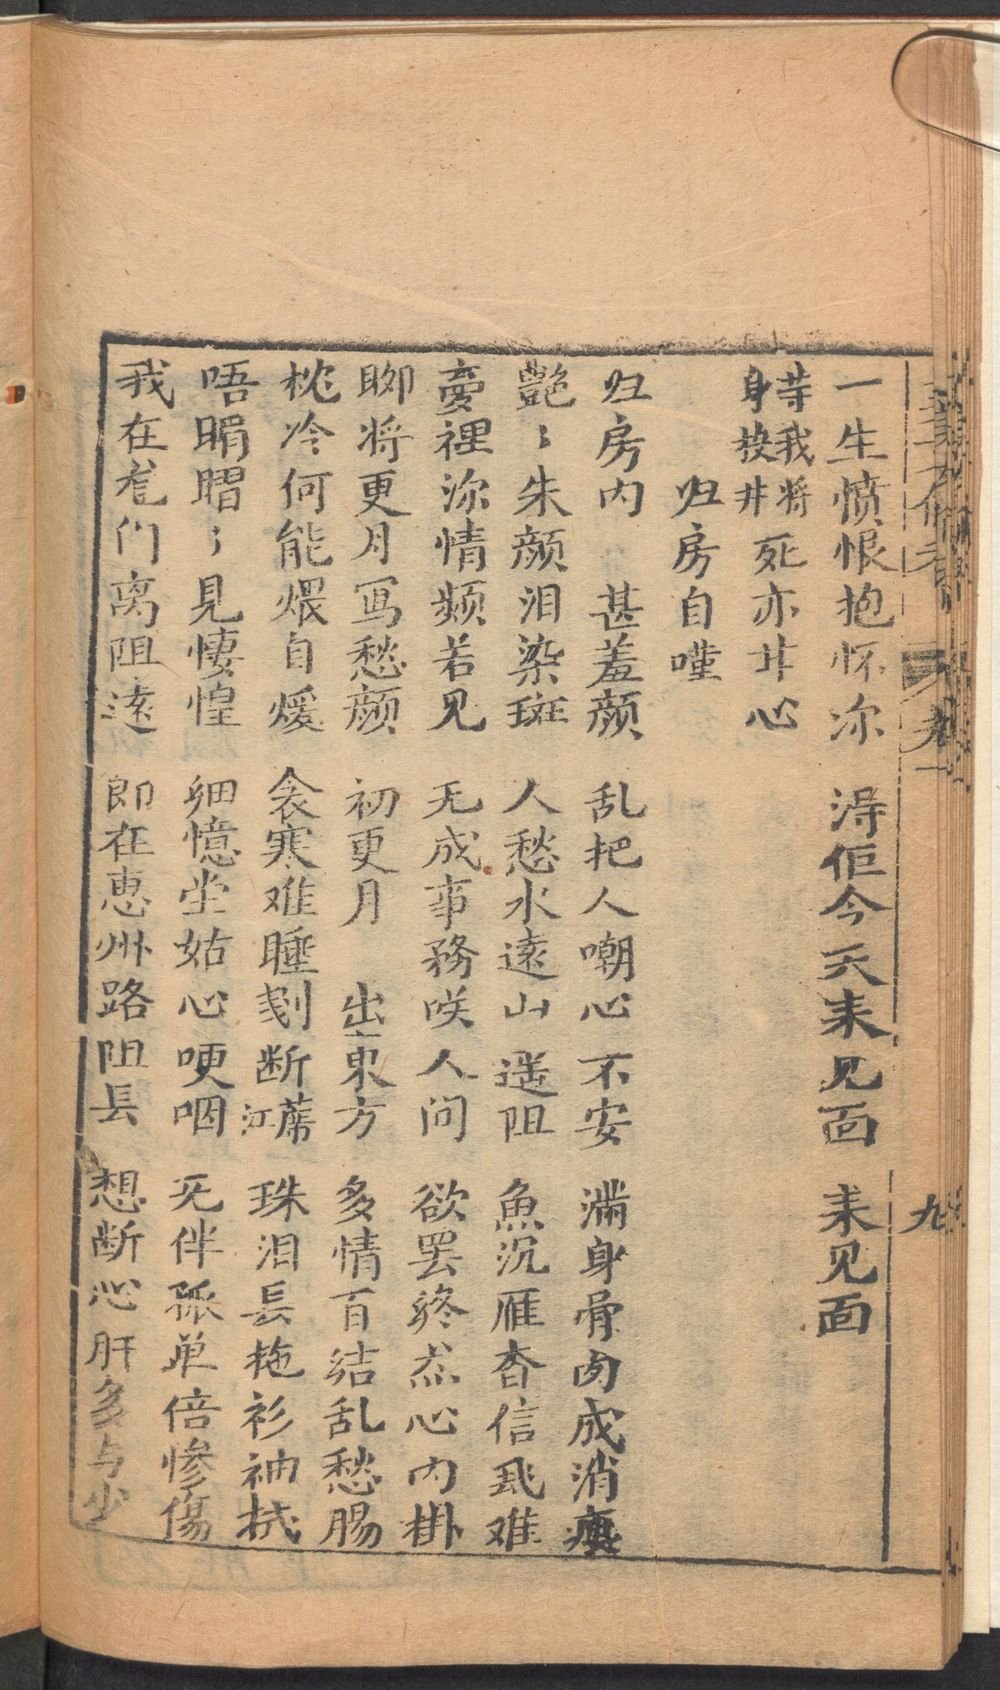 一生愤恨抱怀你　得佢今天耒见面　耒见面
䒭我将身投井死亦甘心
归房自嘆
归房内　甚羞颜　乱把人嘲心不安　满身骨肉成消瘦
艶〻朱颜泪染斑　人愁水遠山遥阻　魚沉雁杳信难
夢裡你情频若见　无成事務咲人问　欲罢终怸心内掛
聊将更月写愁颜　初更月　出東方　多情百结乱愁腸
枕冷何能煨自煖　衾寒难睡刬断江蓆　珠泪長拖衫袖
唔眀瞃〻見悽惶　细憶坐姑心哽咽　无伴孤单倍惨傷
我在门离阻遠　即在惠州路阻長　想断心肝多与少
九